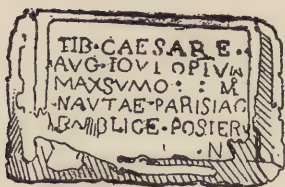 TIB·CAESARE·
AVG·IOVI OPTVM
MAXSVMO : : M
NAVTAE·PARISIAC
PVBLICE·POSIERV
N